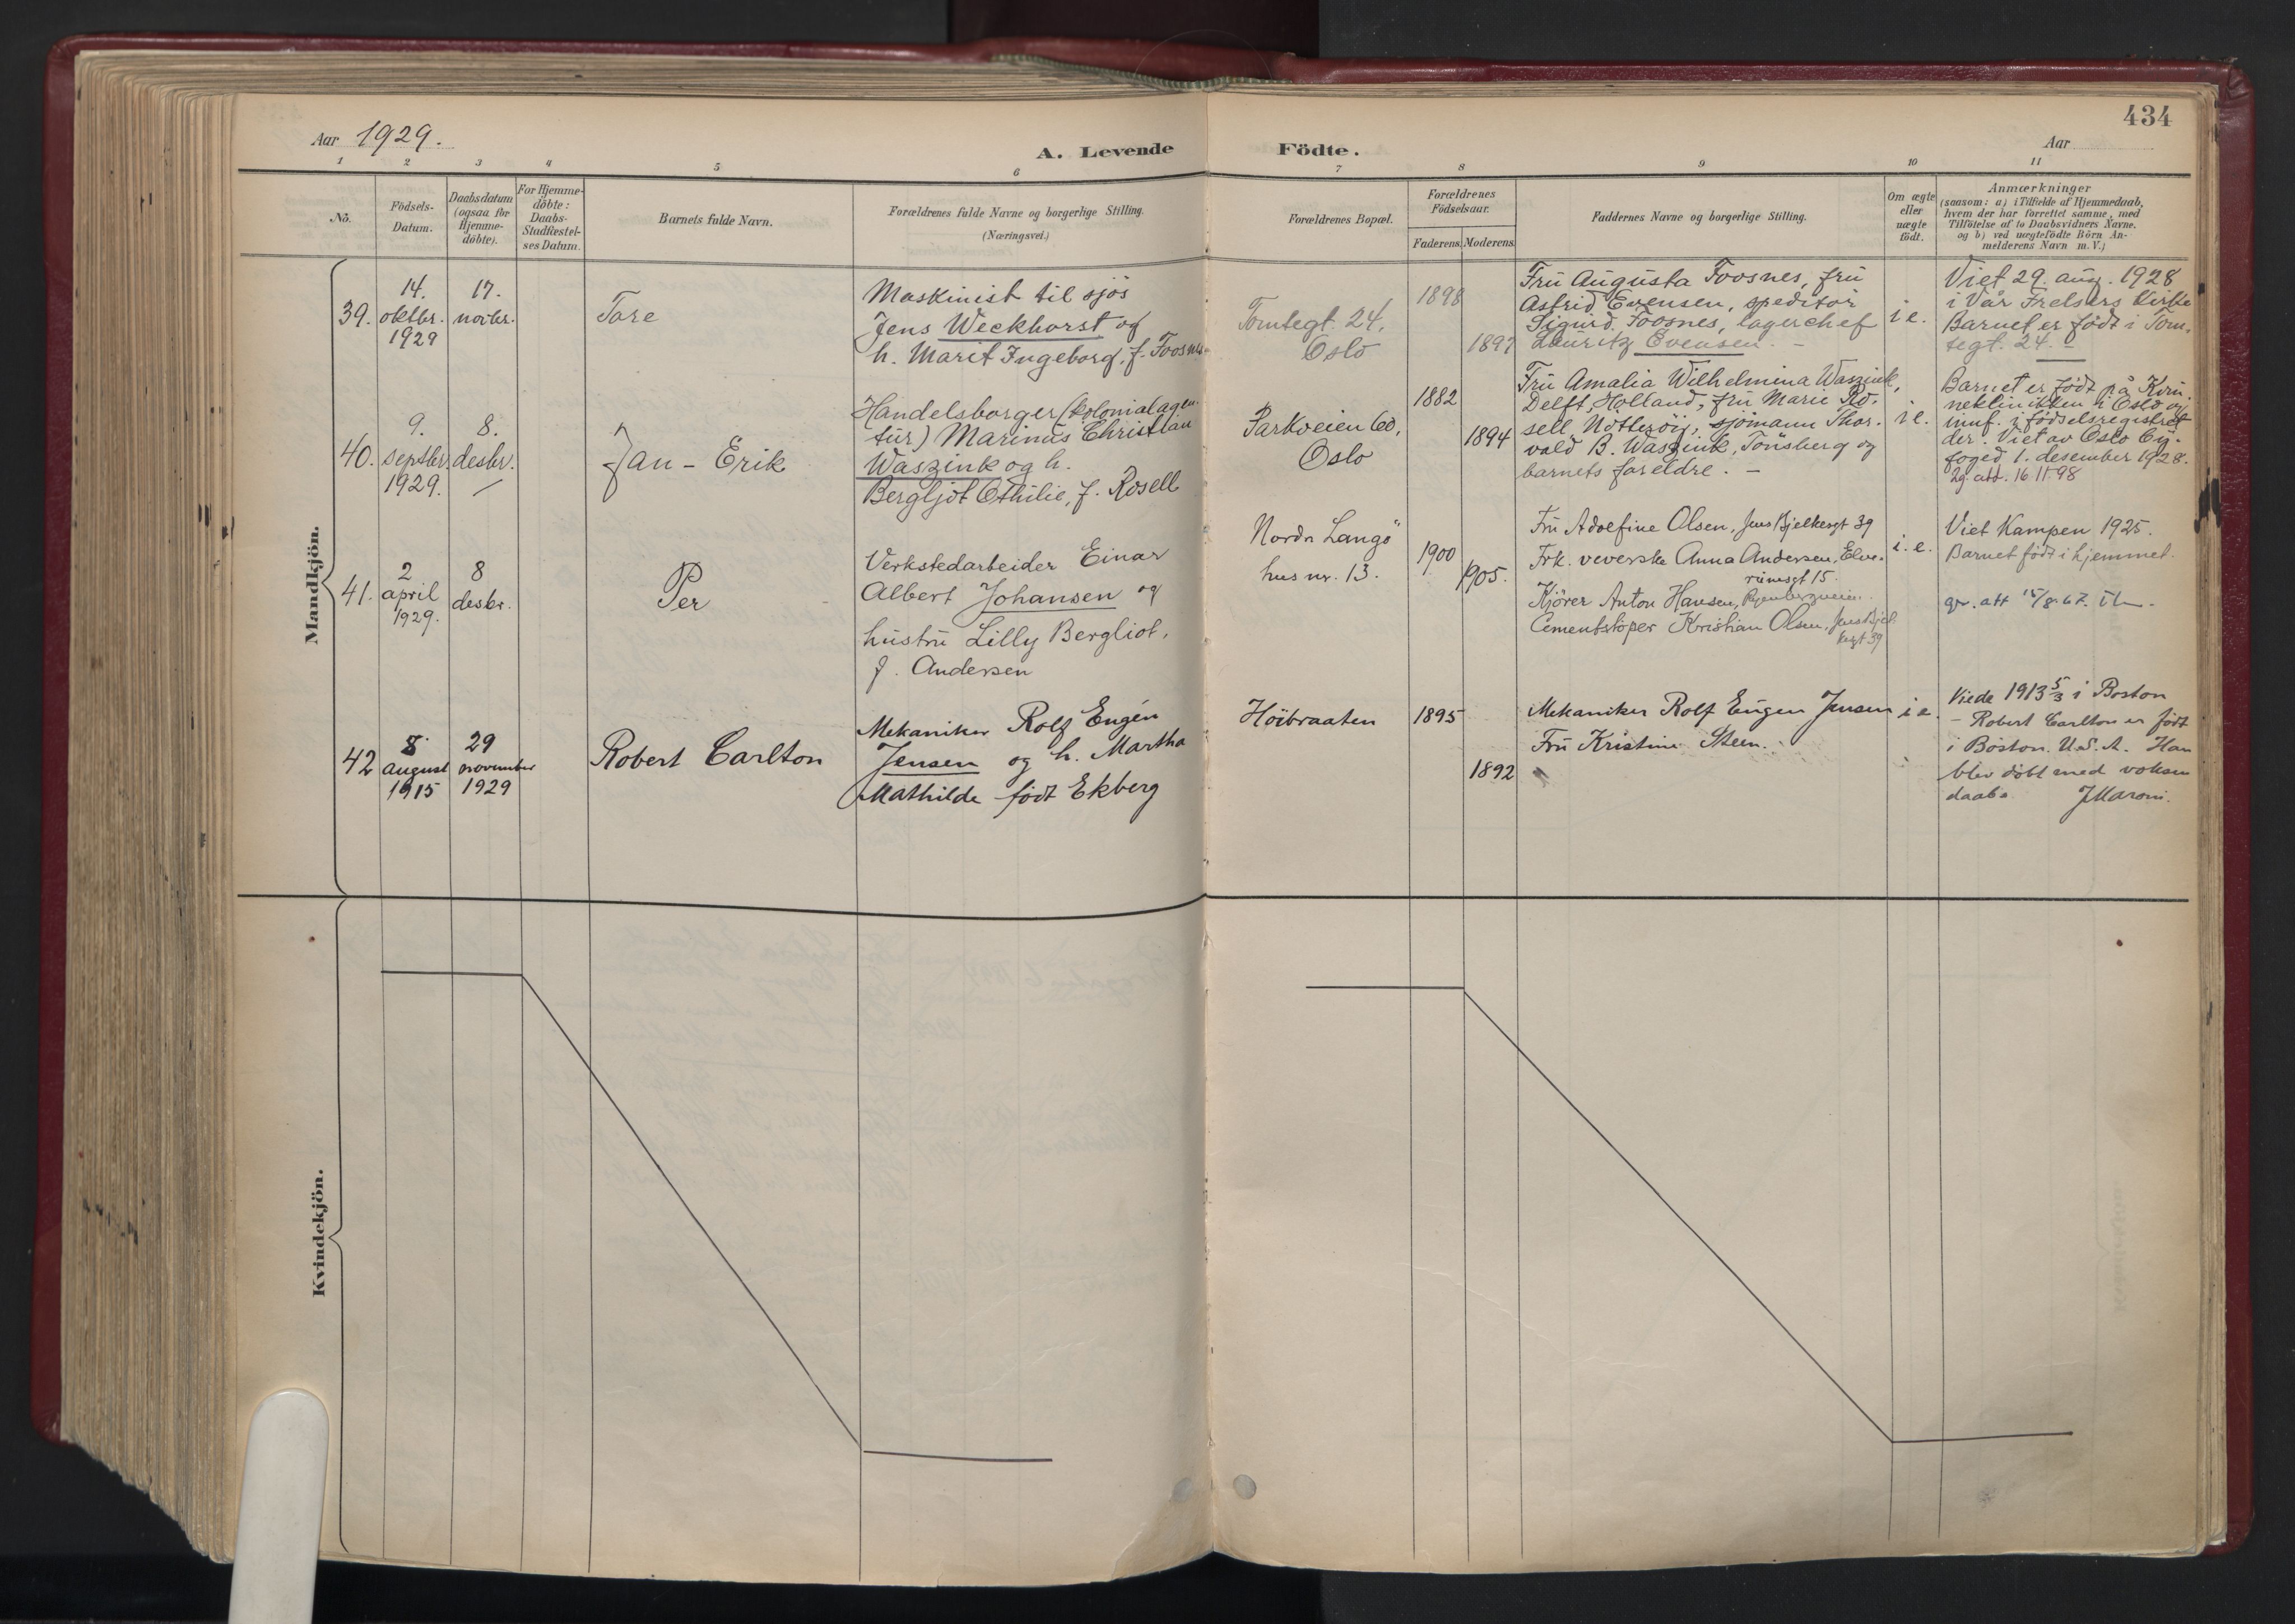 434
Aar 1929.
A. Levende Födte.
Aar
1 2 3 4 5 6 7 8 9 10 11
Nō.
Födsels-
Datum.
Daabsdatum
(ogsaa for
Hjemme-
döbte).
For Hjemme-
döbte:
Daabs-
Stadfæstel-
ses Datum.
Barnets fulde Navn.
Forældrenes fulde Navne og borgerlige Stilling.
(Næringsvei.)
Forældrenes Bopæl.
Forældrenes
Födselsaar.
Faderens. Moderens.
Faddernes Navne og borgerlige Stilling.
Om ægte
eller
uægte
födt.
Anmærkninger
(saasom: a) i Tilfælde af Hjemmedaab,
hvem der har forrettet samme, med
Tilföielse af to Daabsvidners Navne.
og b) ved uægtefödte Börn An-
melderens Navn m. V.)
Mandkjön.
39.
14.
oktbr.
1929
17.
novbr.
Tore
Maskinist til sjös
Jens Weckhorst og
h. Marit Ingeborg, f. Foosnes
Tomtegt. 24,
Oslo
1898
1897
Fru Augusta Foosnes, fru
Astrid Evensen, speditör
Sigurd Foosnes, lagerchef
Lauritz Evensen. -
i e.
Viet 29. aug. 1928
i Vår Frelsers Kirke
Barnet er födt i Tom-
tegt. 24. -
40.
9.
septbr.
1929.
8.
desbr.
Jan - Erik
Handelsborger (kolonialagen-
tur) Marinus Christian
Waszink og h.
Bergljot Othilie, f. Rosell
Parkveien 60,
Oslo
1882
1894
Fru Amalia Wilhelmina Waszink,
Delft, Holland, fru Marie Ro-
sell, Nötteröy, sjömann Thor-
vald B. Waszink, Tönsberg og
barnets foreldre. -
i e.
Barnet er födt på Kvin-
neklinikken i Oslo og
innf. i födselsregistret
der. Viet av Oslo By-
foged 1. desember 1928.
41.
2
april
1929.
8
desbr.
Per
Verkstedarbeider Einar
Albert Johansen og
hustru Lilly Bergliot,
f. Andersen
Nordr Langö
hus nr. 13.
1900
1905.
Fru Adolfine Olsen, Jens Bjelkesgt 39
Frk. veverske Anna Andersen, Elve-
rumsgt 15.
Kjörer Anton Hansen,
Cementstöper Kristian Olsen, Jens Bjel-
kesgt 39
i. e.
Viet Kampen 1925.
Barnet födt i hjemmet.
42
8
august
1915
29
november
1929
Robert Carlton
Mekaniker Rolf Eugén
Jensen og h. Martha
Mathilde födt Ekberg
Höibraaten
1895
1892
Mekaniker Rolf Eugen Jensen
Fru Kristine Steen.
i e.
Viede 1913 5/3 i Boston
- Robert Carlton er födt
i Boston. U.S.A. Han
blev döbt med voksen
daab. JMaroni.
Kvindekjön.